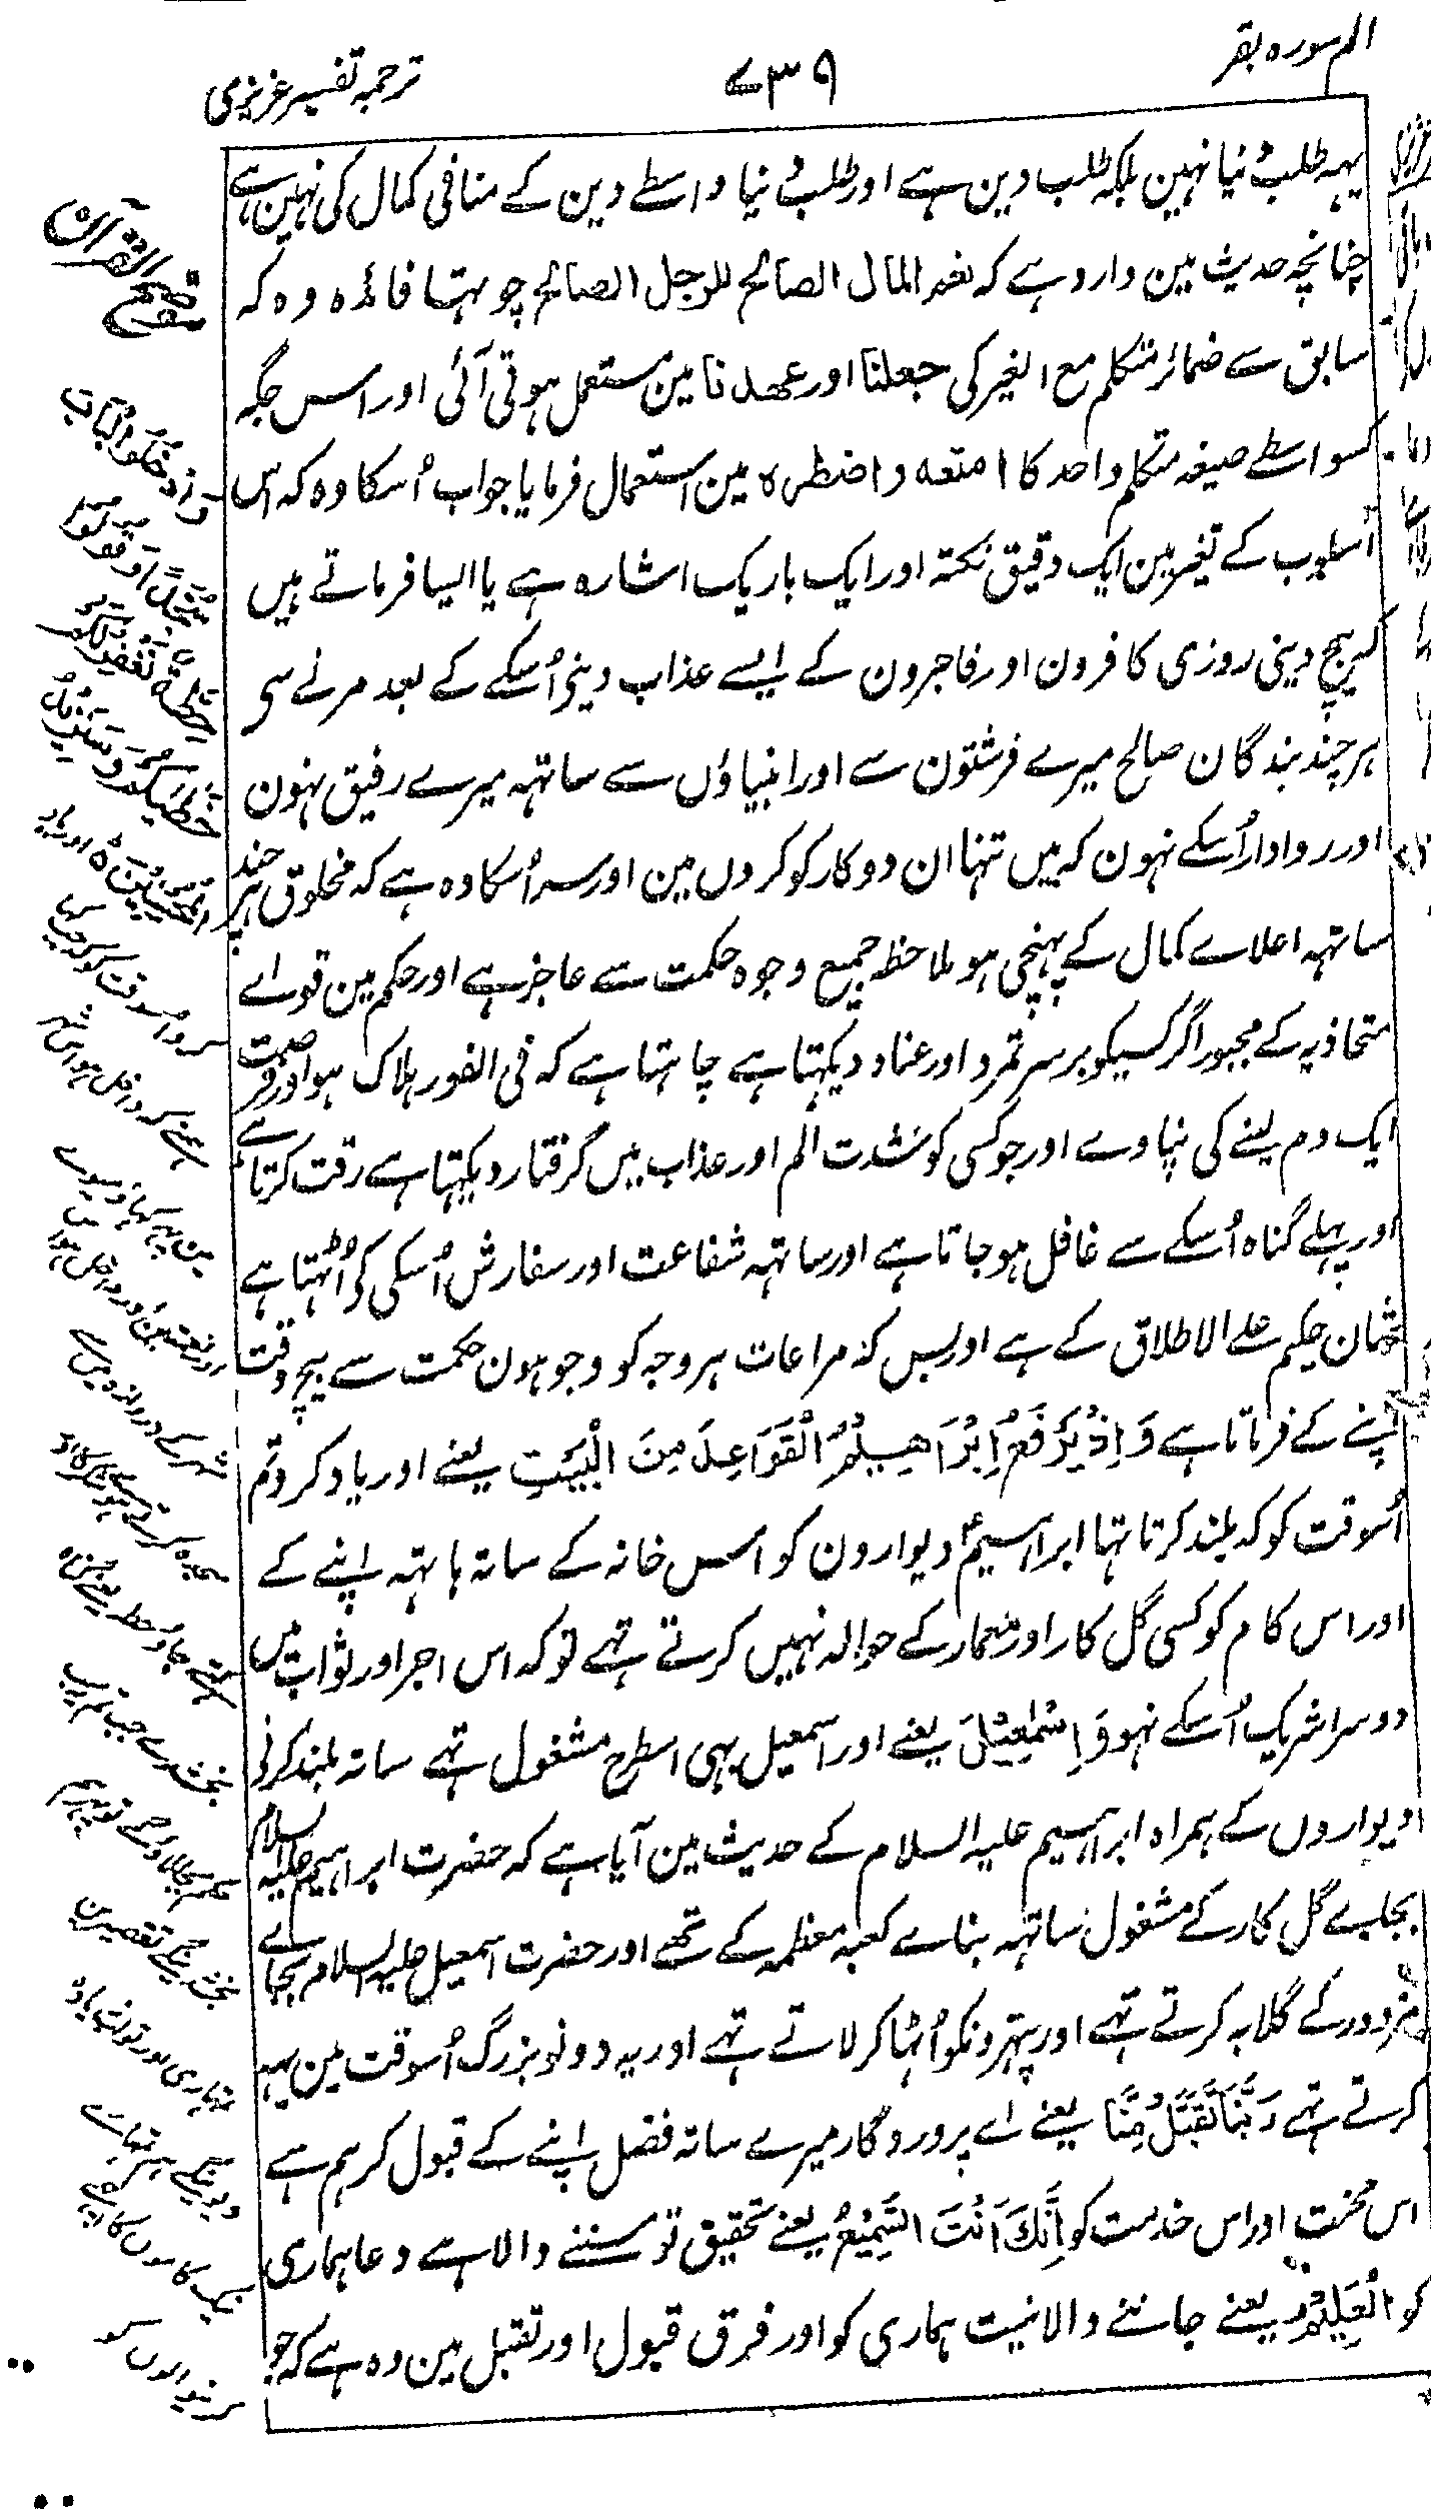 الم سورہ بقر
۷۳۹
ترجمہ تفسیر عزیزی
یہہ طلب دنیا نہین بلکہ طلب دین ہے اور طلب دنیا واسطے دین کے منافی کمال کی نہین ہے
چنانچہ حدیث مین وارد ہے کہ نعم المال الصالح للرجل الصالح چوہتا فائدہ وہ کہ
سابق سے ضمائر متکلم مع الغیر کی جعلنا اور عهدنا مین مستعمل ہوتی آئی اور اس جگہ
کسواسطے صیغہ متکلم واحد کا امتعه و اضطره مین استعمال فرمایا جواب اُسکا وہ کہ اس
اُسلوب کے تغیر مین ایک دقیق نکتہ اور ایک باریک اشارہ ہے یا ایسا فرماتے ہیں
کہ بیچ دینی روزی کافرون اور فاجرون کے ایسے عذاب دینی اُسکے کے بعد مرنے سی
ہر چند بندگان صالح میرے فرشتون سے اور انبیاؤں سے ساتہہ میرے رفیق نہون
اور روادار اُسکے نہون کہ میں تنہا ان دو کار کو کروں مین اور سر اُسکا وہ ہے کہ مخلوق ہر چند
ساتہہ اعلاے کمال کے پہنچی ہو ملاحظہ جمیع وجوہ حکمت سے عاجز ہے اور حکم مین قواے
متحاذیہ کے مجبور اگر کسیکو برسر تمرد اور عناد دیکہتا ہے چاہتا ہے کہ فی الفور ہلاک ہو اور فرصت
ایک دم لینے کی نپاوے اور جو کسی کو شدت الم اور عذاب میں گرفتار دیکہتا ہے رقت کرتا ہے
اور پہلے گناہ اُسکے سے غافل ہو جاتا ہے اور ساتہہ شفاعت اور سفارش اُسکی کی اُٹہتا ہے
شان حکیم علے الاطلاق کے ہے اور بس کہ مراعات ہر وجہ کو وجوہون حکمت سے بیچ وقت
اپنے کے فرماتا ہے وَ اِذْ يَرْفَعُ اِبْرَاهِيمُ الْقَوَاعِدَ مِنَ الْبَيْتِ یعنے اور یاد کرو تم
اُسوقت کو کہ بلند کرتا تہا ابراہیم ؑ دیوارون کو اس خانہ کے ساتہ ہاتہہ اپنے کے
اور اس کام کو کسی گل کار اور معمار کے حوالہ نہیں کرتے تہے توکہ اس اجر اور ثواب میں
دوسرا شریک اُسکے نہو وَ اِسْمٰعِيْلَ یعنے اور اسمعیل بہی اسطرح مشغول تہے ساتہ بلند کرنی
دیواروں کے ہمراہ ابراہیم علیہ السلام کے حدیث مین آیا ہے کہ حضرت ابراہیم علیہ السلام
بجاے گل کار کے مشغول ساتہہ بناے کعبہ معظمہ کے تھے اور حضرت اسمعیل علیہ السلام بجاے
مزدور کے گلابہ کرتے تہے اور پتہرونکو اُٹہا کر لاتے تہے اور یہ دونو بزرگ اُسوقت مین یہہ
کرتے تہے رَبَّنَا تَقَبَّلْ مِنَّا یعنے اے پروردگار میرے ساتہ فضل اپنے کے قبول کر ہم سے
اس محنت اور اس خدمت کو اِنَّكَ اَنْتَ السَّمِيْعُ یعنے تحقیق تو سننے والا ہے دعا ہماری
کو الْعَلِيْمُ یعنے جاننے والا نیت ہماری کو اور فرق قبول اور تقبل مین وہ ہے کہ جو
موضح القرآن
وَ ادْخُلُوا الْبَابَ
سُجَّدًا وَّ قُوْلُوْا
حِطَّةٌ نَّغْفِرْ لَكُمْ
خَطٰيٰكُمْ وَ سَنَزِيْدُ
الْمُحْسِنِيْنَ ۵ اور یاد
کرو اُسوقت کو کہ جب کہا
ہمنے کہ داخل ہو اس شہر
شہر کے دروازہ میں سے
سجدہ کرتے
بخشدینگے تقصیرین
تمہاری
نیک کاموں کا
کرنیوالوں کو